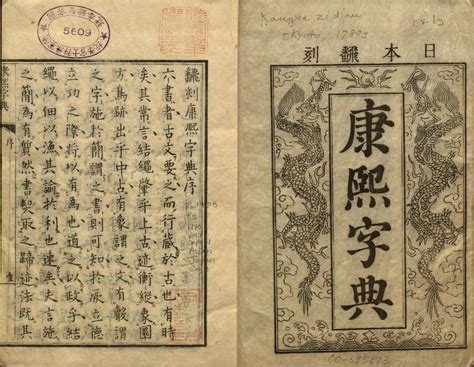 日本飜刻
康熙字典
Kangxi zidian
(Kyoto, 1780)
5609
飜刻康熙字典序
六書者古文要之而行蔵於古也有時
矣其常言結繩肇乎上古迹衡縱象圖
方鳥跡出乎中古有像謂之文有謂
之字施於簡謂之書則可知於立德
立功之際將以有為也道之以政乎結
繩以佃以漁其諭於利也速矣史言施
之簡為有然書契取之歸迹法既其
康熙字典
序